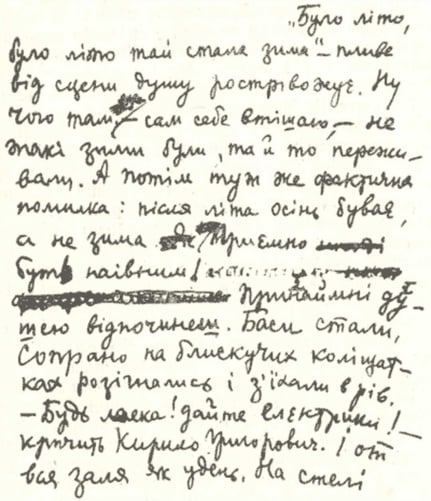 „Було літо,
було літо тай стала зима“ – пливе
від сцени, душу розтрівожує. Ну
чого там, – сам себе втішаю, – не
такі зими були, та й то пережи-
вали. А потім тут же фактична
помилка: після літа осінь буває,
а не зима. Приємно
бути наівним!
Принаймні ду-
шею відпочинеш. Баси стали,
Сопрано на блискучих коліщат-
ках розігнались і з'їхали в рів.
– Будь ласка! дайте електрики! –
кричить Кирило Григорович. І от
вся заля як удень. На стелі